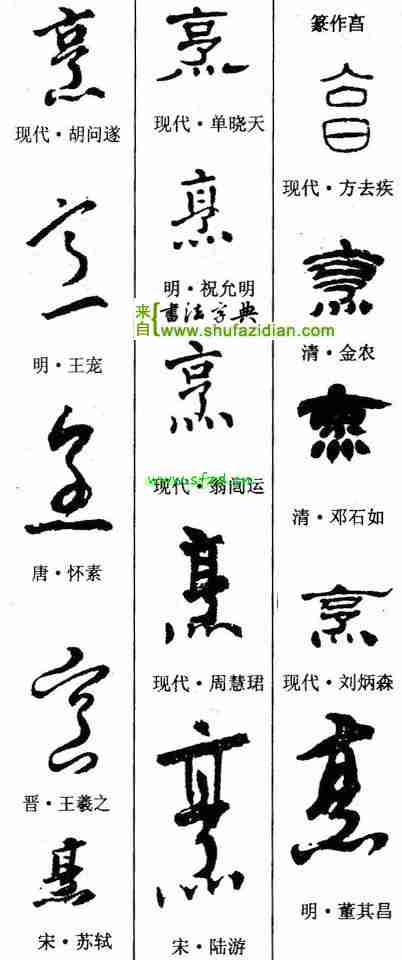 篆作亯
亯
现代·方去疾
烹
清·金农
烹
清·邓石如
烹
现代·刘炳森
烹
明·董其昌
烹
现代·单晓天
烹
明·祝允明
来自{書法字典
www.shufazidian.com
烹
www.sfzd.cn
现代·翁闿运
烹
现代·周慧珺
烹
宋·陆游
烹
现代·胡问遂
烹
明·王宠
烹
唐·怀素
烹
晋·王羲之
烹
宋·苏轼